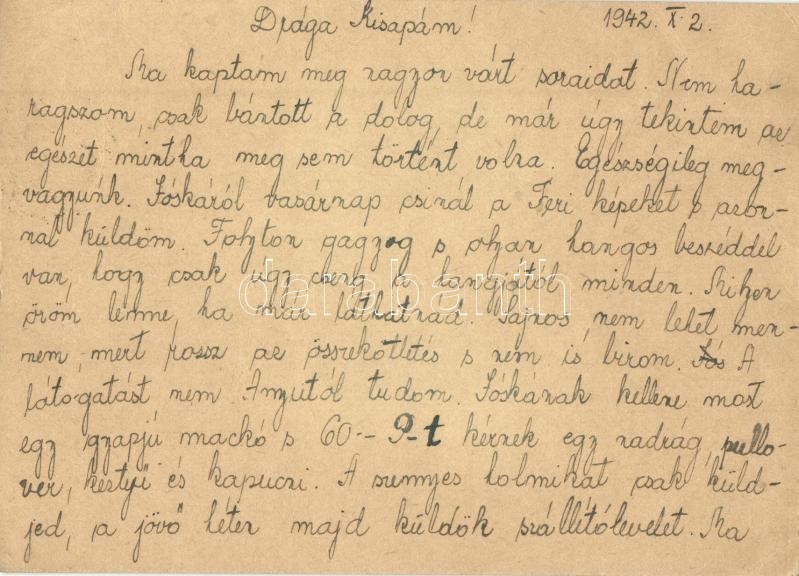 Drága Kisapám! 1942. X. 2.
Ma kaptam meg nagyon várt soraidat. Nem ha-
ragszom, csak bántott a dolog, de már úgy tekintem az
egészet mintha meg sem történt volna. Egészségileg meg-
vagyunk. Jóskáról vasárnap csinál a Feri képeket s azon-
nal küldöm. Folyton gagyog s olyan hangos beszéddel
van, hogy csak úgy cseng a hangjától minden. Milyen
öröm lenne, ha már láthatnád. Sajnos nem lehet men-
nem, mert rossz az összeköttetés s nem is birom. A
látogatást nem Anyutól tudom. Jóskának kellene most
egy gyapjú mackó s 60-- P-t kérnek egy nadrág, pullo-
ver, kestyű és kapucni. A szennyes holmikat csak küld-
jed, a jövő héten majd küldök szállítólevelet. Ma
darabanth